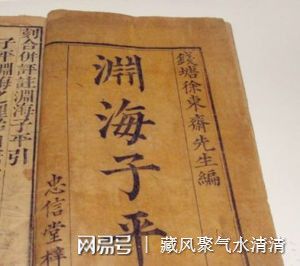 錢塘徐東齋先生編
淵海子平
忠信堂梓
刻合併評註淵海子平引
子平淵海
网易号 | 藏风聚气水清清